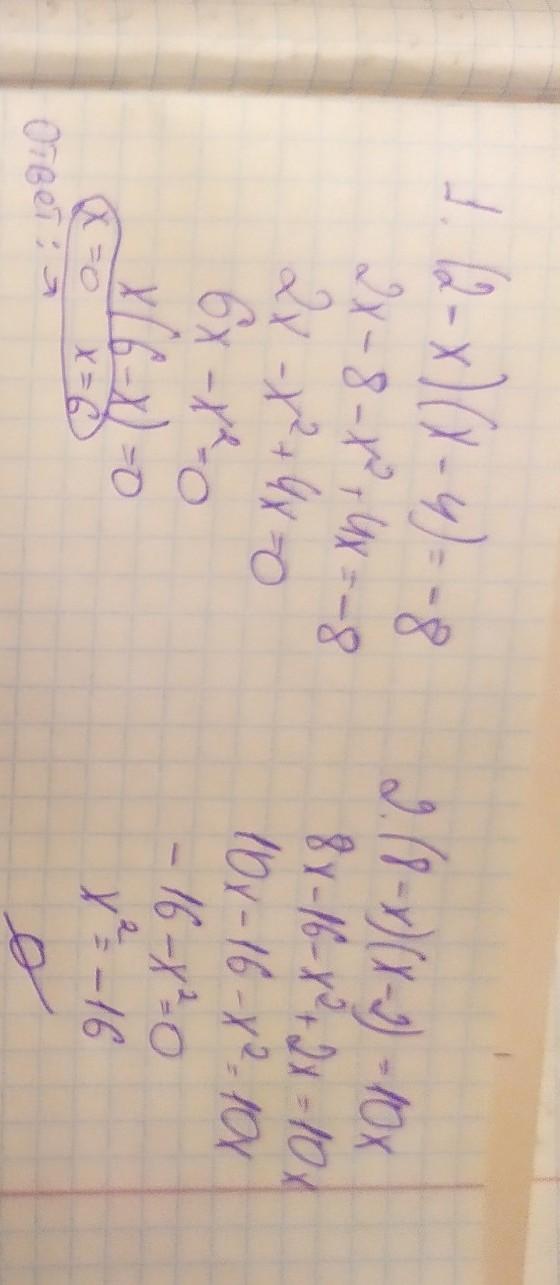 1. (2 - x)(x - 4) = -8
2x - 8 - x² + 4x = -8
2x - x² + 4x = 0
6x - x² = 0
x(6 - x) = 0
x = 0 x = 6
Ответ: →
2. (8 - x)(x - 2) = 10x
8x - 16 - x² + 2x = 10x
10x - 16 - x² = 10x
- 16 - x² = 0
x² = -16
∅